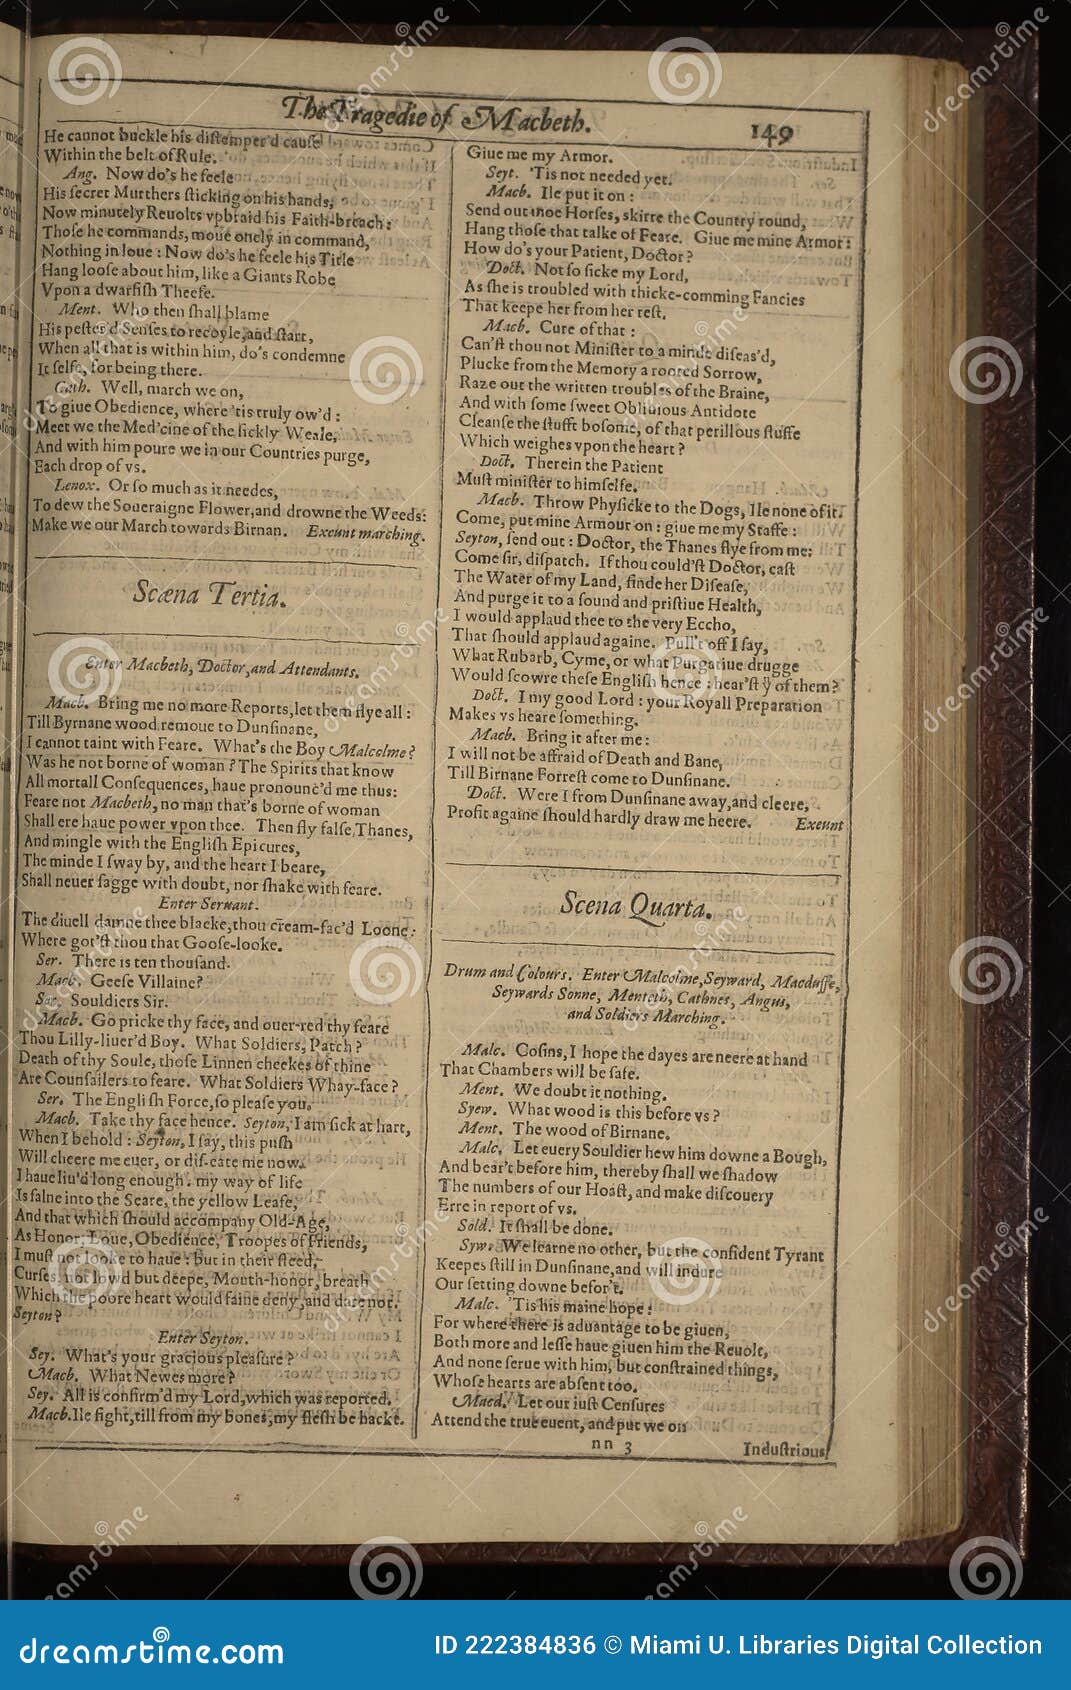 The Tragedie of Macbeth.
149
He cannot buckle his distemper'd cause
Within the belt of Rule.
Ang. Now do's he feele
His secret Murthers sticking on his hands,
Now minutely Reuolts vpbraid his Faith-breach:
Those he commands, moue onely in command,
Nothing in loue: Now do's he feele his Title
Hang loose about him, like a Giants Robe
Vpon a dwarfish Theefe.
Ment. Who then shall blame
His pester'd Senses to recoyle, and start,
When all that is within him, do's condemne
It selfe, for being there.
Cath. Well, march we on,
To giue Obedience, where 'tis truly ow'd:
Meet we the Med'cine of the sickly Weale,
And with him poure we in our Countries purge,
Each drop of vs.
Lenox. Or so much as it needes,
To dew the Soueraigne Flower, and drowne the Weeds:
Make we our March towards Birnan. Exeunt marching.
Scæna Tertia.
Enter Macbeth, Doctor, and Attendants.
Macb. Bring me no more Reports, let them flye all:
Till Byrnane wood remoue to Dunsinane,
I cannot taint with Feare. What's the Boy Malcolme?
Was he not borne of woman? The Spirits that know
All mortall Consequences, haue pronounc'd me thus:
Feare not Macbeth, no man that's borne of woman
Shall ere haue power vpon thee. Then fly false Thanes,
And mingle with the English Epicures,
The minde I sway by, and the heart I beare,
Shall neuer sagge with doubt, nor shake with feare.
Enter Seruant.
The diuell damne thee blacke, thou cream-fac'd Loone:
Where got'st thou that Goose-looke.
Ser. There is ten thousand.
Macb. Geese Villaine?
Ser. Souldiers Sir.
Macb. Go pricke thy face, and ouer-red thy feare
Thou Lilly-liuer'd Boy. What Soldiers, Patch?
Death of thy Soule, those Linnen cheekes of thine
Are Counsailers to feare. What Soldiers Whay-face?
Ser. The English Force, so please you.
Macb. Take thy face hence. Seyton, I am sick at hart,
When I behold: Seyton, I say, this push
Will cheere me euer, or dis-eate me now.
I haue liu'd long enough: my way of life
Is falne into the Seare, the yellow Leafe,
And that which should accompany Old-Age,
As Honor, Loue, Obedience, Troopes of Friends,
I must not looke to haue: but in their steed,
Curses, not lowd but deepe, Mouth-honor, breath
Which the poore heart would faine deny, and dare not.
Seyton?
Enter Seyton.
Sey. What's your gracious pleasure?
Macb. What Newes more?
Sey. All is confirm'd my Lord, which was reported.
Macb. Ile fight, till from my bones, my flesh be hackt.
Giue me my Armor.
Seyt. 'Tis not needed yet.
Macb. Ile put it on:
Send out moe Horses, skirre the Country round,
Hang those that talke of Feare. Giue me mine Armor:
How do's your Patient, Doctor?
Doct. Not so sicke my Lord,
As she is troubled with thicke-comming Fancies
That keepe her from her rest.
Macb. Cure of that:
Can'st thou not Minister to a minde diseas'd,
Plucke from the Memory a rooted Sorrow,
Raze out the written troubles of the Braine,
And with some sweet Obliuious Antidote
Cleanse the stufft bosome, of that perillous stuffe
Which weighes vpon the heart?
Doct. Therein the Patient
Must minister to himselfe.
Macb. Throw Physicke to the Dogs, Ile none of it.
Come, put mine Armour on: giue me my Staffe:
Seyton, send out: Doctor, the Thanes flye from me:
Come sir, dispatch. If thou could'st Doctor, cast
The Water of my Land, finde her Disease,
And purge it to a sound and pristiue Health,
I would applaud thee to the very Eccho,
That should applaud againe. Pull't off I say,
What Rubarb, Cyme, or what Purgatiue drugge
Would scowre these English hence: hear'st yͤ of them?
Doct. I my good Lord: your Royall Preparation
Makes vs heare something.
Macb. Bring it after me:
I will not be affraid of Death and Bane,
Till Birnane Forrest come to Dunsinane.
Doct. Were I from Dunsinane away, and cleere,
Profit againe should hardly draw me heere. Exeunt
Scena Quarta.
Drum and Colours. Enter Malcolme, Seyward, Macduffe,
Seywards Sonne, Menteth, Cathnes, Angus,
and Soldiers Marching.
Malc. Cosins, I hope the dayes are neere at hand
That Chambers will be safe.
Ment. We doubt it nothing.
Syew. What wood is this before vs?
Ment. The wood of Birnane.
Malc. Let euery Souldier hew him downe a Bough,
And bear't before him, thereby shall we shadow
The numbers of our Hoast, and make discouery
Erre in report of vs.
Sold. It shall be done.
Syw. We learne no other, but the confident Tyrant
Keepes still in Dunsinane, and will indure
Our setting downe befor't.
Malc. 'Tis his maine hope:
For where there is aduantage to be giuen,
Both more and lesse haue giuen him the Reuolt,
And none serue with him, but constrained things,
Whose hearts are absent too.
Macd. Let our iust Censures
Attend the true euent, and put we on
nn 3
Industrious
dreamstime.com
ID 222384836 © Miami U. Libraries Digital Collection